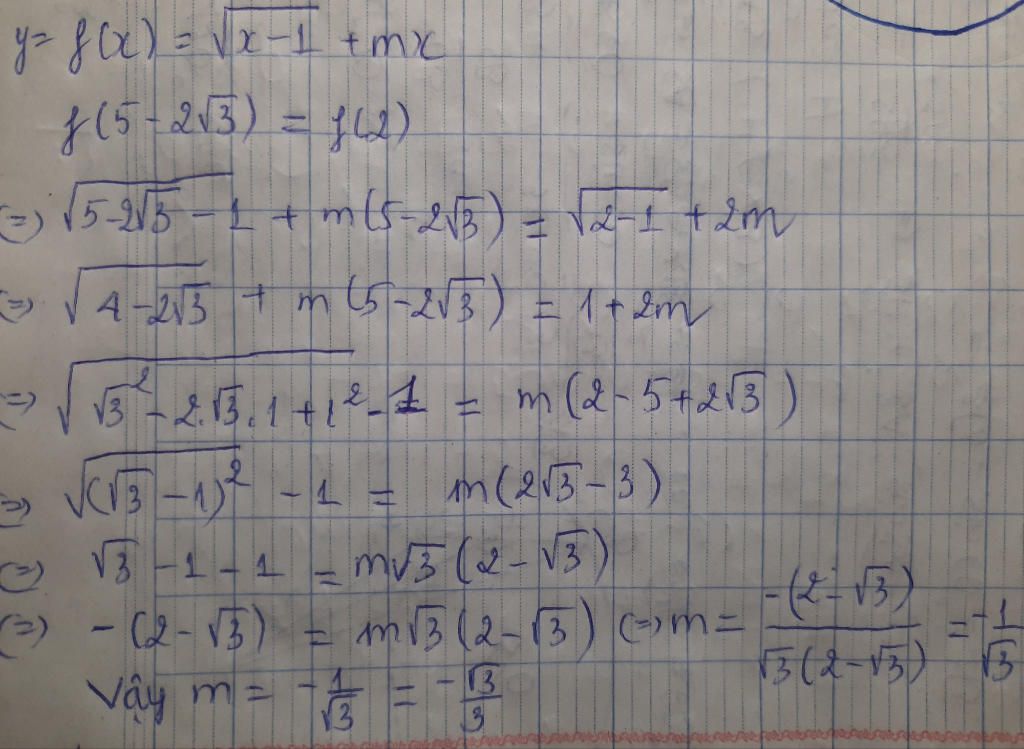 y = f(x) = √(x-1) + mx
f(5 - 2√3) = f(2)
(=) √(5-2√3 - 1) + m(5-2√3) = √(2-1) + 2m
(=) √(4-2√3) + m(5-2√3) = 1+2m
(=) √(√3² - 2.√3.1 + 1²) - 1 = m(2-5+2√3)
(=) √((√3 - 1)²) - 1 = m(2√3-3)
(=) √3 - 1 - 1 = m√3(2-√3)
(=) -(2-√3) = m√3(2-√3) (=) m = -(2-√3)/√3(2-√3) = -1/√3
Vậy m = -1/√3 = -√3/3